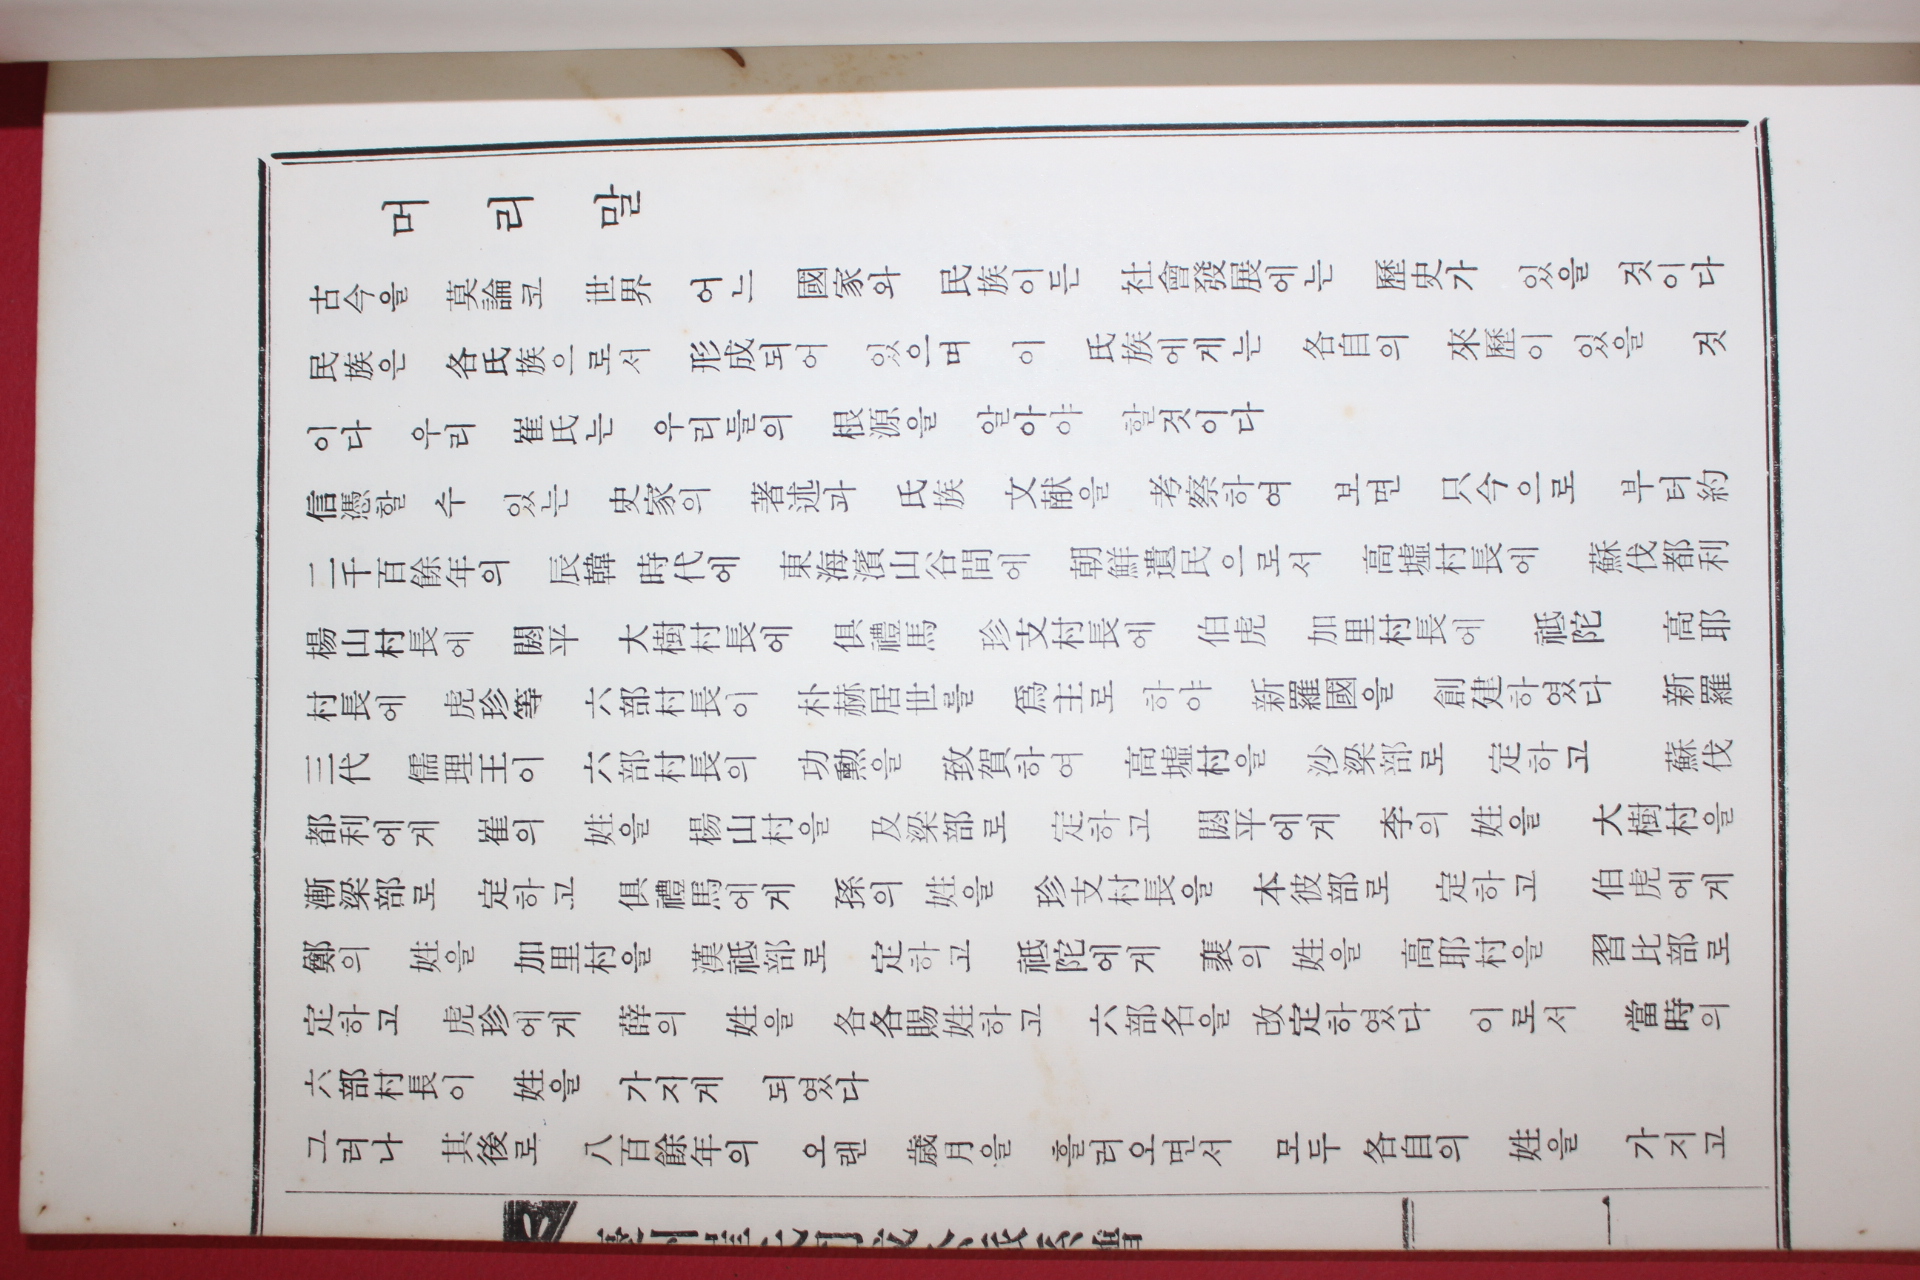 머리말
古今을 莫論코 世界 어느 國家와 民族이든 社會發展에는 歷史가 있을 것이다
民族은 各氏族으로서 形成되어 있으며 이 氏族에게는 各自의 來歷이 있을 것
이다 우리 崔氏는 우리들의 根源을 알아야 할것이다
信憑할 수 있는 史家의 著述과 氏族 文献을 考察하여 보면 只今으로 부터 約
二千百餘年의 辰韓 時代에 東海濱山谷間에 朝鮮遺民으로서 高墟村長에 蘇伐都利
楊山村長에 閼平 大樹村長에 俱禮馬 珍支村長에 伯虎 加里村長에 祗陀 高耶
村長에 虎珍等 六部村長이 朴赫居世를 爲主로 하야 新羅國을 創建하였다 新羅
三代 儒理王이 六部村長의 功勳을 致賀하여 高墟村을 沙梁部로 定하고 蘇伐
都利에게 崔의 姓을 楊山村을 及梁部로 定하고 閼平에게 李의 姓을 大樹村을
漸梁部로 定하고 俱禮馬에게 孫의 姓을 珍支村長을 本彼部로 定하고 伯虎에게
鄭의 姓을 加里村을 漢祗部로 定하고 祗陀에게 裵의 姓을 高耶村을 習比部로
定하고 虎珍에게 薛의 姓을 各各賜姓하고 六部名을 改定하였다 이로서 當時의
六部村長이 姓을 가지게 되였다
그러나 其後로 八百餘年의 오랜 歲月을 흘러오면서 모두 各自의 姓을 가지고
一